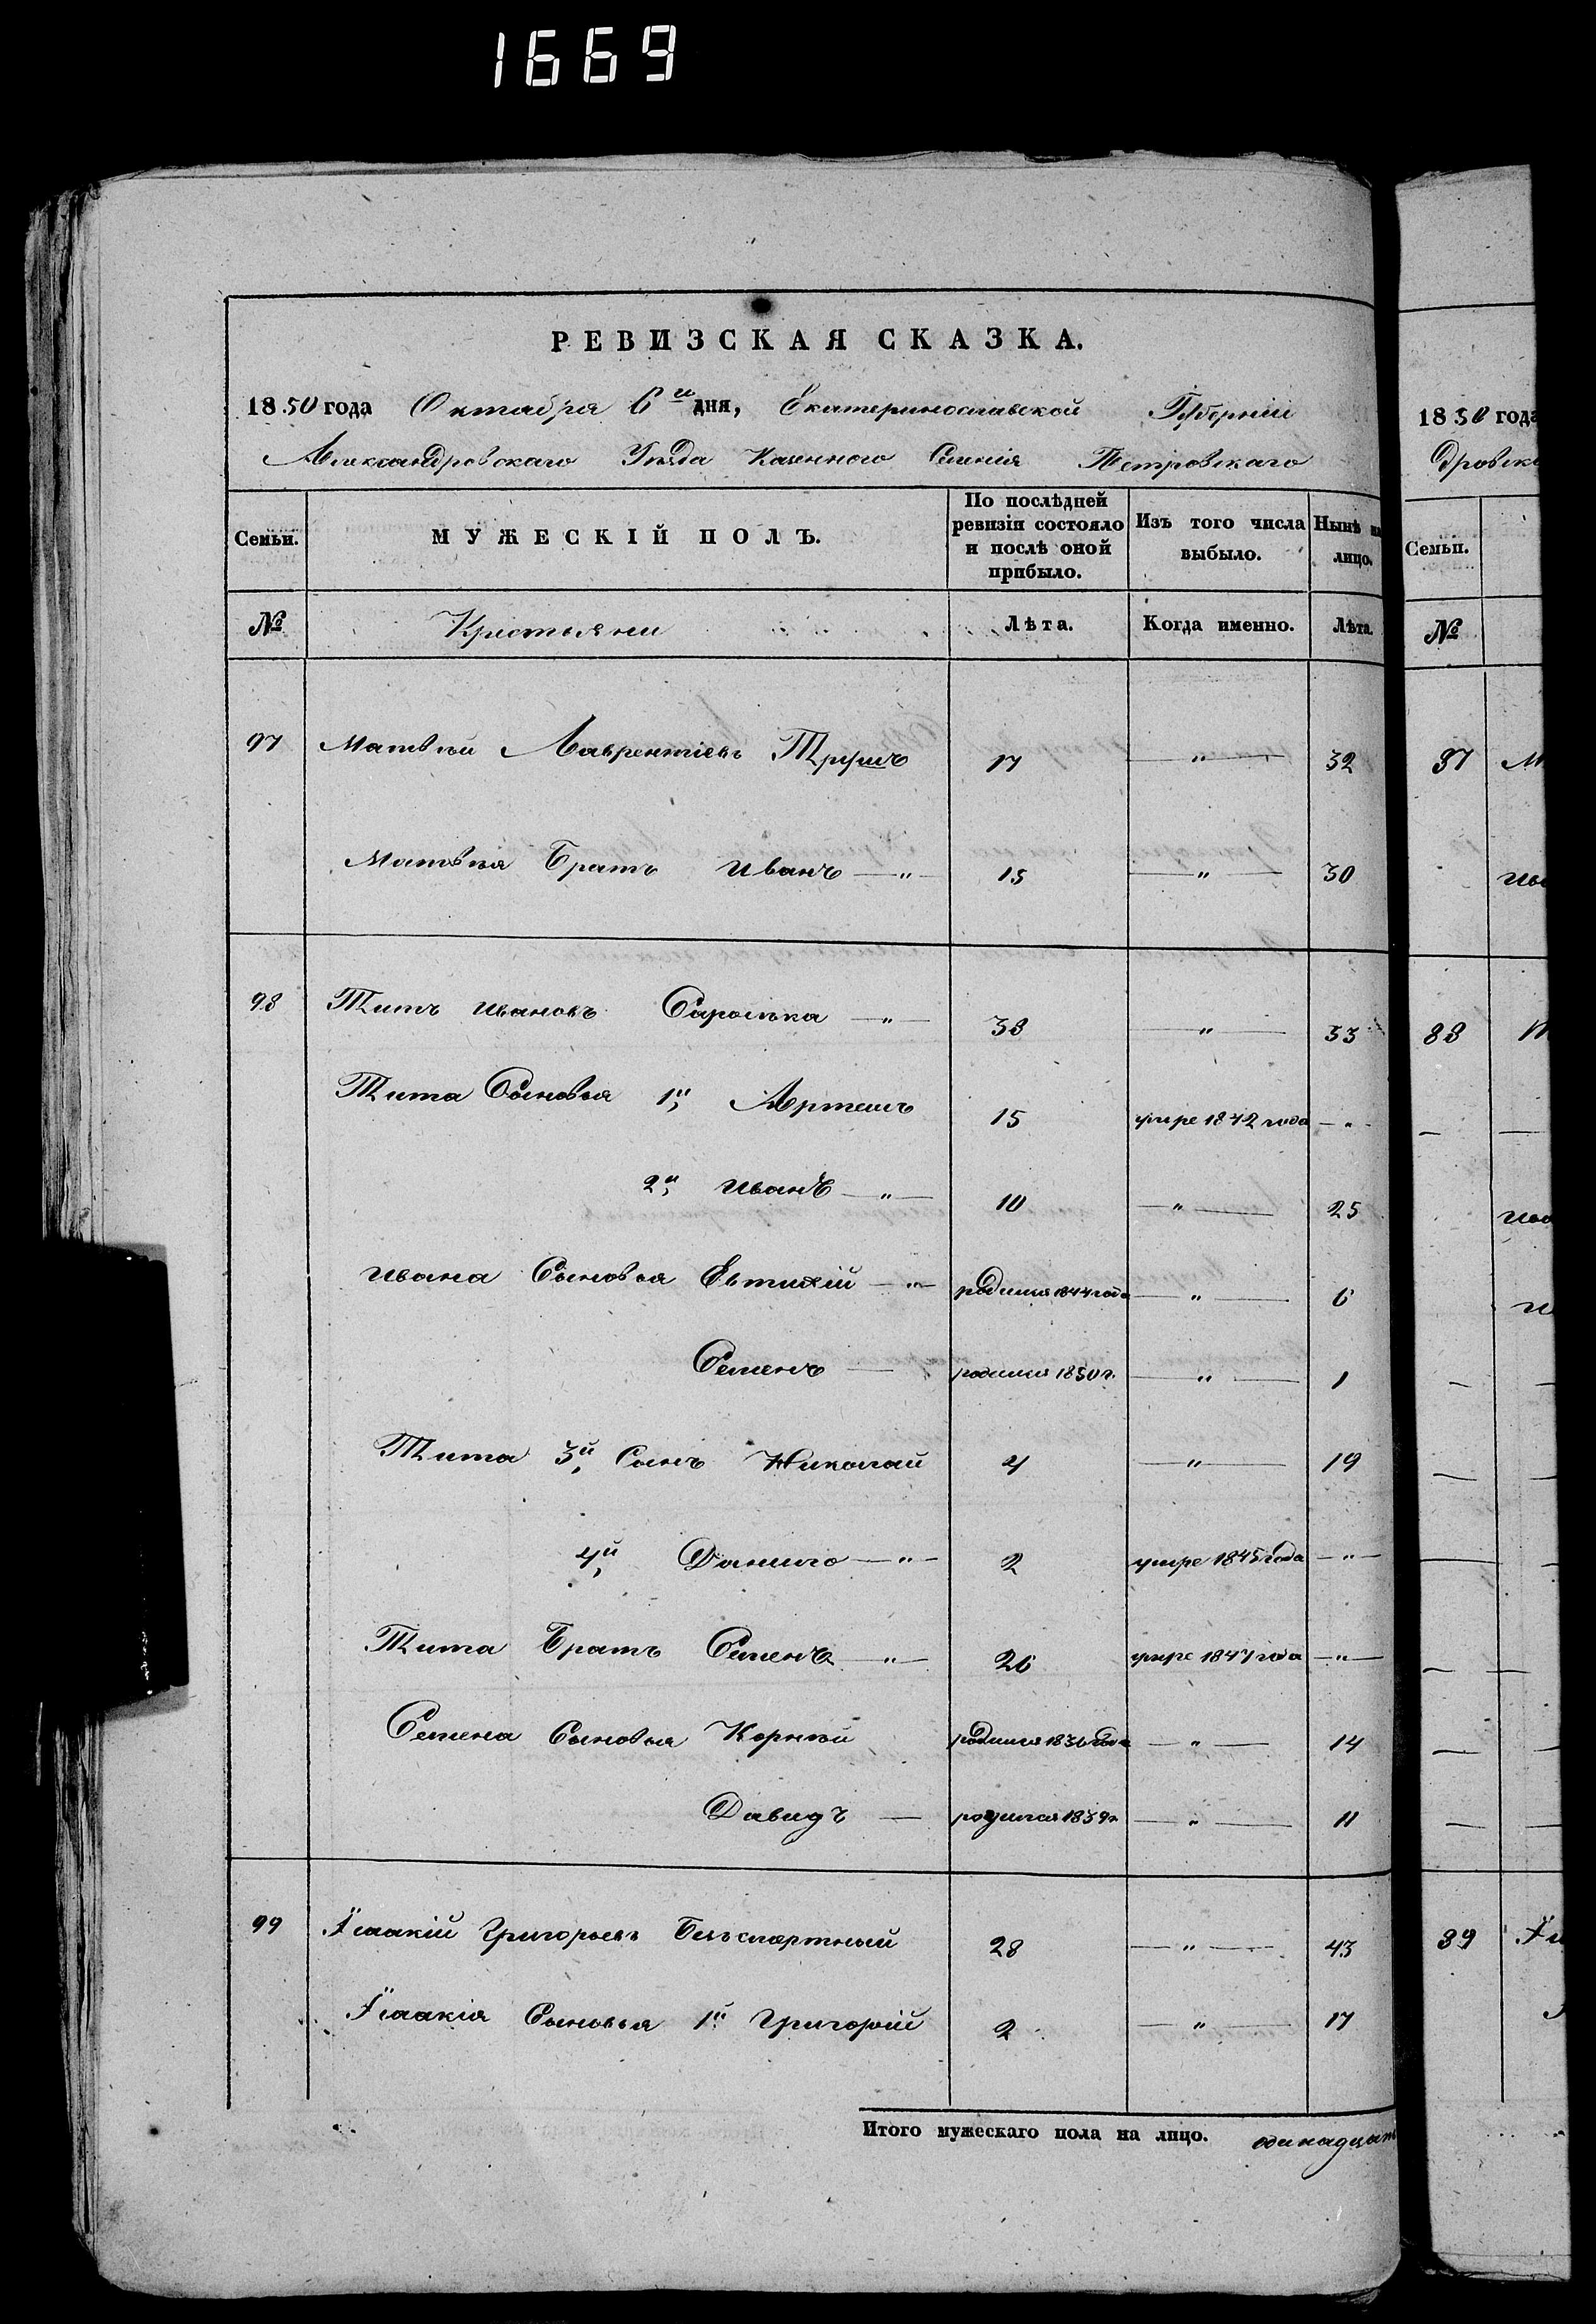 1669
РЕВИЗСКАЯ СКАЗКА.
1850 года Октября 6го дня, Екатеринославской Губерніи
Александровскаго Уѣзда Казенного Селенія Петровскаго
Семьи. МУЖЕСКІЙ ПОЛЪ. По послѣдней ревизіи состояло и послѣ оной прибыло. Изъ того числа выбыло. Нынѣ на лицо.
№ Крестьяни Лѣта. Когда именно. Лѣта.
97 Матвѣй Лаврентіевъ Трушъ 17 — " — 32
Матвѣя Братъ Иванъ — " — 15 — " — 30
98 Титъ Ивановъ — " — 38 — " — 53
Тита Сыновья 1й Артемъ 15 умре 1842 года — " —
2й Иванъ — " — 10 — " — 25
Ивана Сыновья Евтихій — " — родился 1844 года — " — 6
Семенъ — родился 1850 г. — " — 1
Тита 3й Сынъ Николай 4 — " — 19
4й Данило — " — 2 умре 1845 года — " —
Тита Братъ Семенъ — " — 26 умре 1847 года — " —
Семена Сыновья Корнѣй родился 1836 года — " — 14
Давидъ — родился 1839 г. — " — 11
99 Ісаакій Григорьевъ Безсмертный 28 — " — 43
Ісаакія Сыновья 1й Григорій 2 — " — 17
Итого мужескаго пола на лицо. одинадцать
1850 года
дровска
Семьи.
№
97
98
99